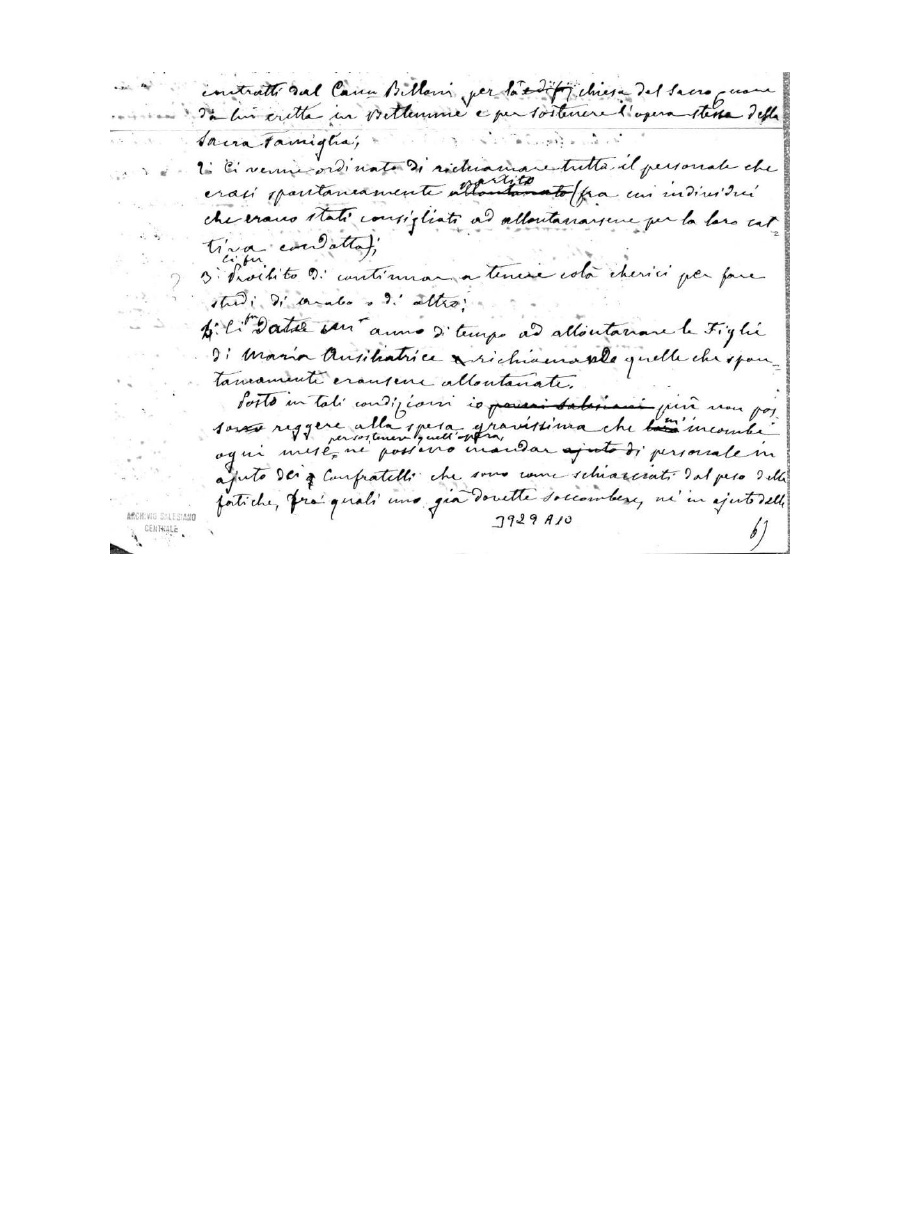 contratti dal Can. Belloni per la edifiz chiesa del Sacro Cuore
da lui eretta in Betlemme e per sostenere l'opera stessa della
Sacra Famiglia;
2. Ci venne ordinato di richiamare tutto il personale che
partito
erasi spontaneamente allontanato (fra cui individui
che erano stati consigliati ad allontanarsene per la loro cat-
tiva condotta);
ci fu
3. Proibito di continuar a tenere colà cherici per fare
studi di arabo o di altro;
4. Ci fu Dato un anno di tempo ad allontanare le Figlie
di Maria Ausiliatrice e richiamarvi quelle che spon-
taneamente eransene allontanate.
Posto in tali condizioni io poveri Salesiani più non pos-
sono reggere alla spesa gravissima che loro mi incombe
per sostenere quell'opera,
ogni mese, nè possono mandar ajuto di personale in
ajuto dei Confratelli che sono come schiacciati dal peso delle
fatiche, fra' quali uno già dovette soccombere, nè in ajuto delle
ARCHIVIO SALESIANO
CENTRALE
3929 A10
6)